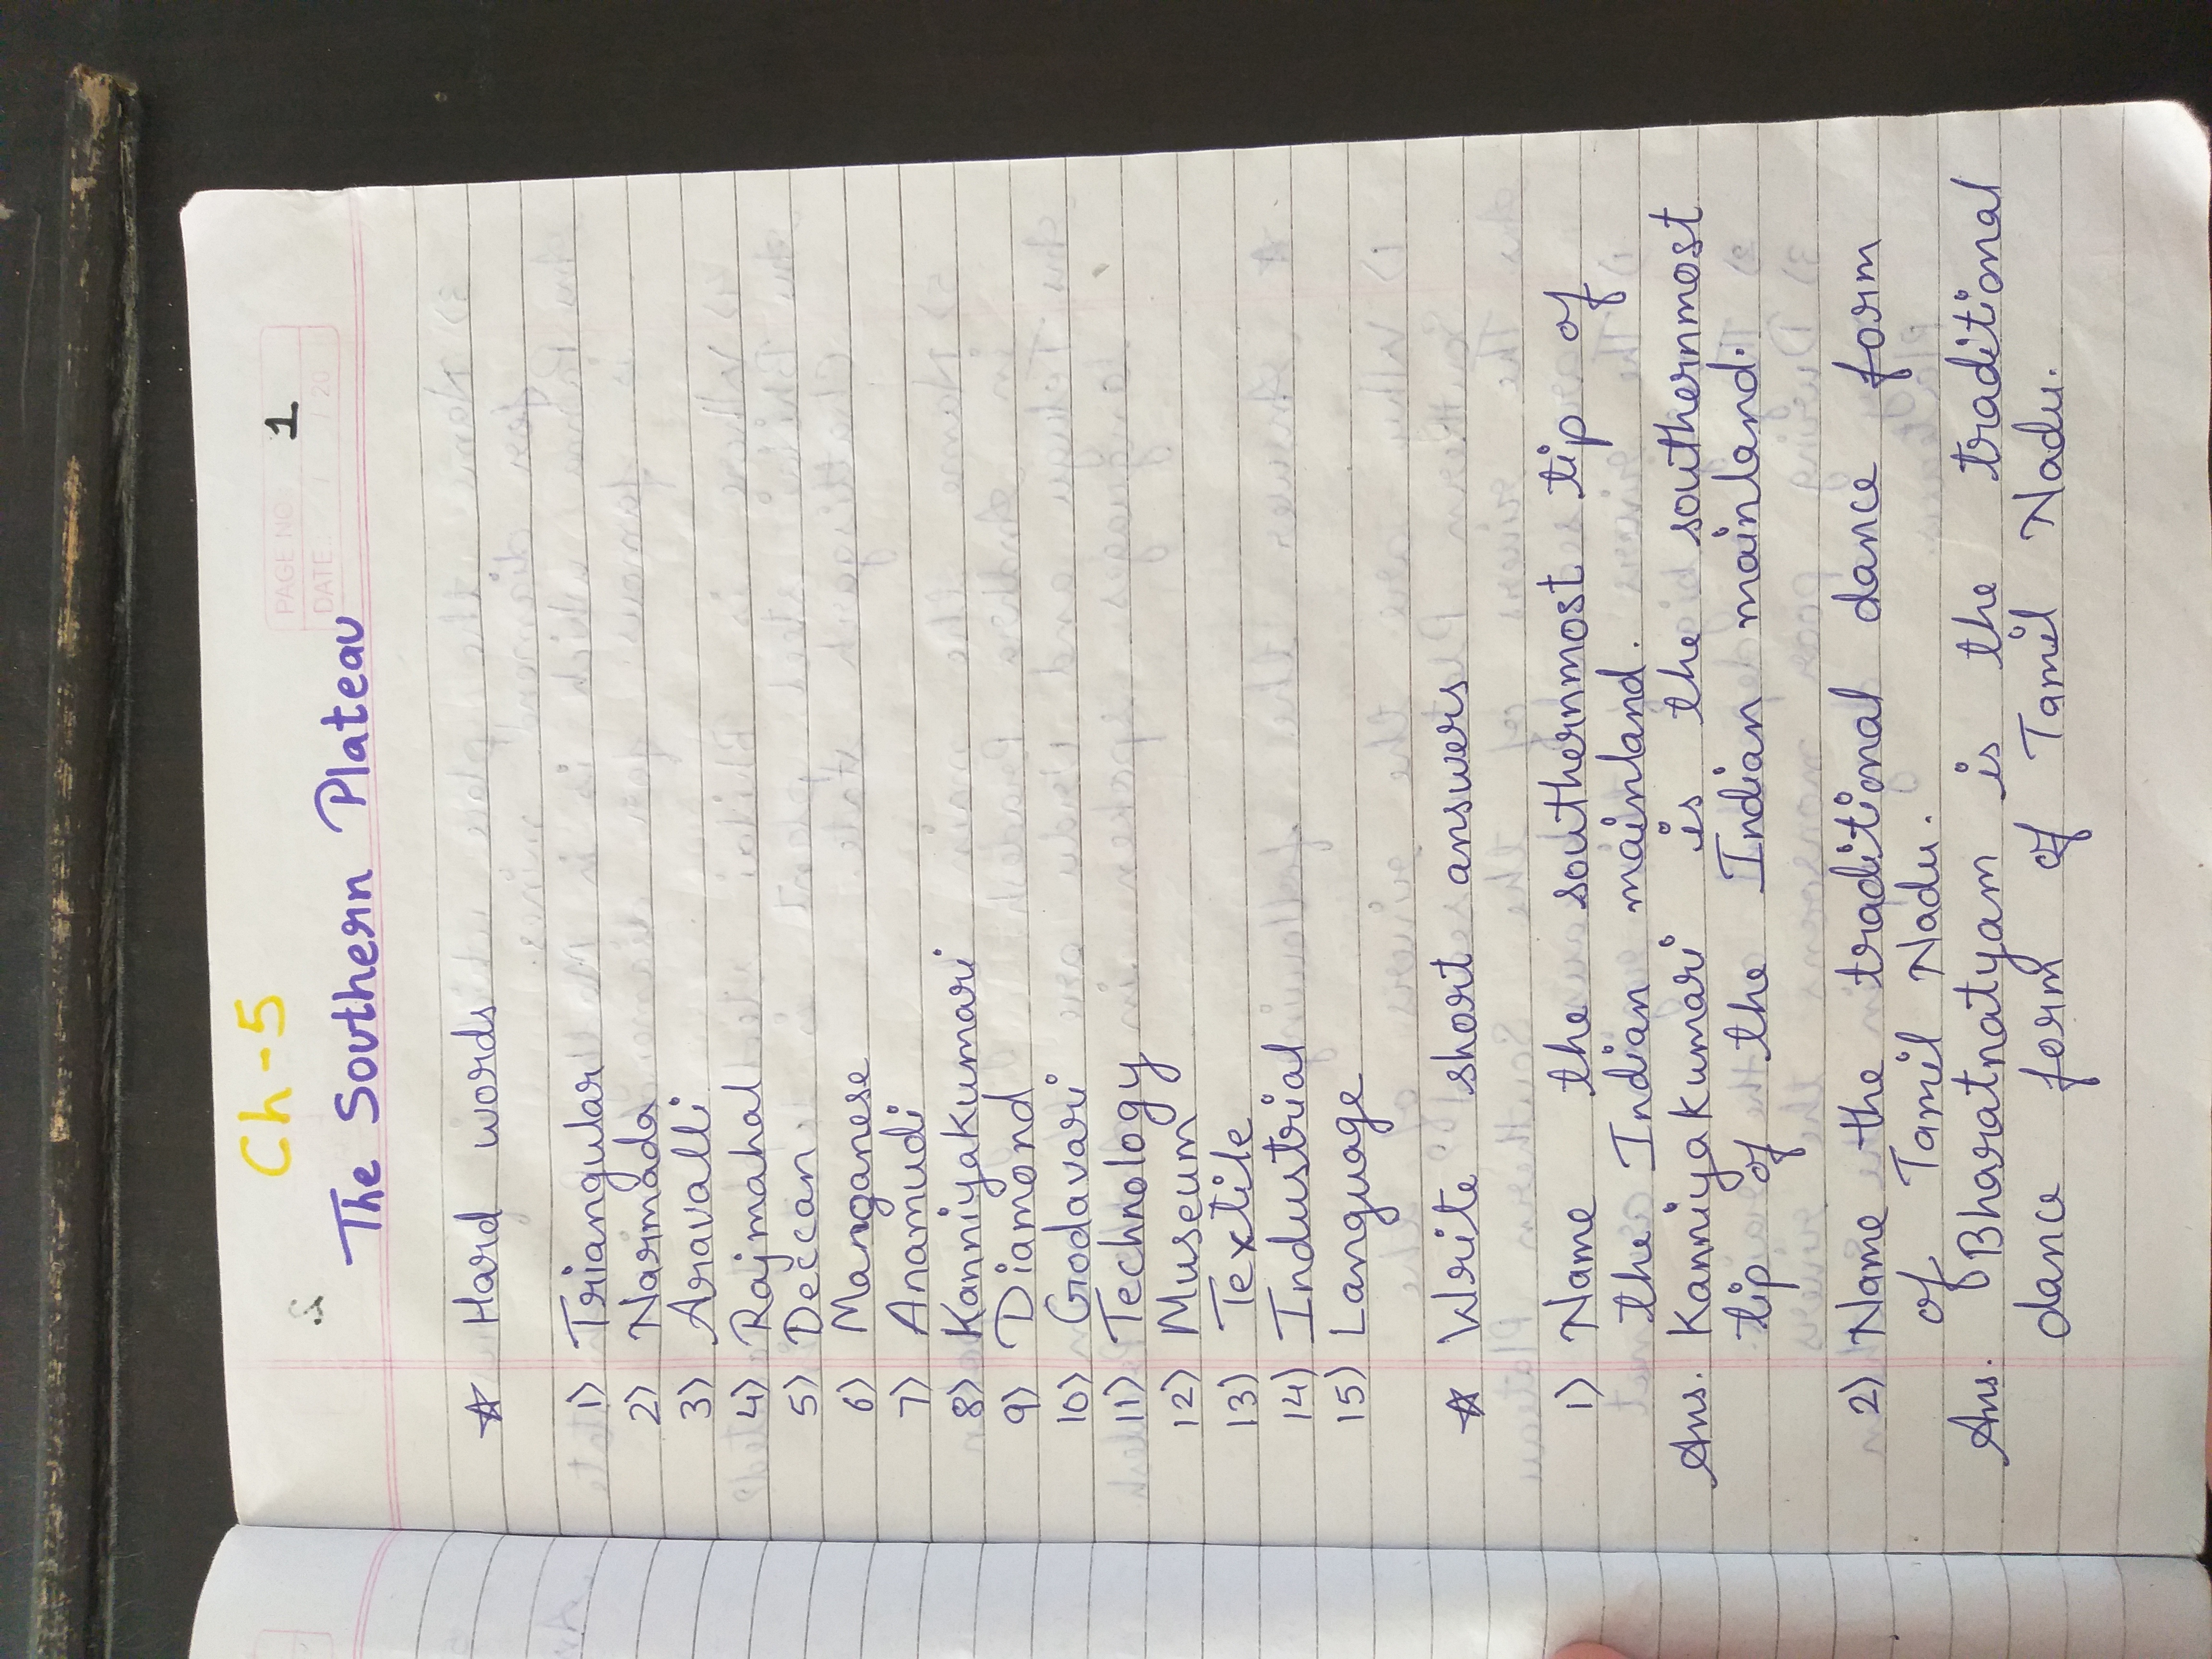 PAGE NO.
DATE / / 20
1
Ch-5
The Southern Plateau
☆ Hard words
1) Triangular
2) Narmada
3) Aravalli
4) Rajmahal
5) Deccan
6) Manganese
7) Anamudi
8) Kanniyakumari
9) Diamond
10) Godavari
11) Technology
12) Museum
13) Textile
14) Industrial
15) Language
☆ Write short answers
1) Name the southernmost tip of
the Indian mainland.
Ans. Kanniyakumari is the southernmost
tip of the Indian mainland.
2) Name the traditional dance form
of Tamil Nadu.
Ans. Bharatnatyam is the traditional
dance form of Tamil Nadu.